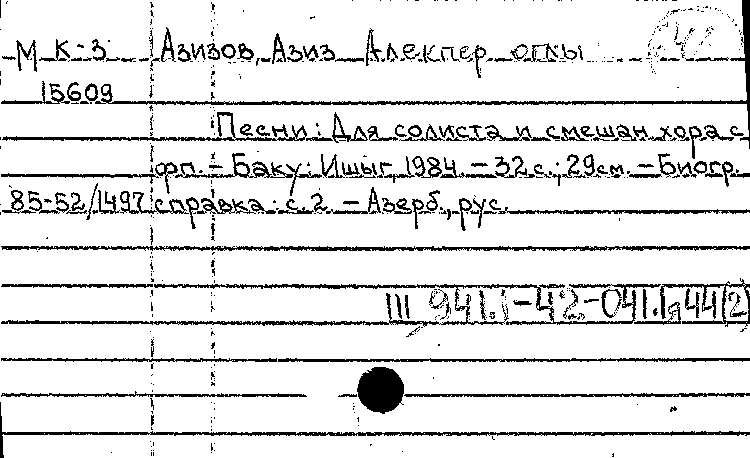 М К-3 Азизов, Азиз Алекпер оглы
15609
Песни: Для солиста и смешан хора с
фп. – Баку: Ишыг, 1984. – 32 с.; 29 см. – Биогр.
85-52/1497 справка: с. 2. – Азерб., рус.
III 941.1-42-041.1я44(2)